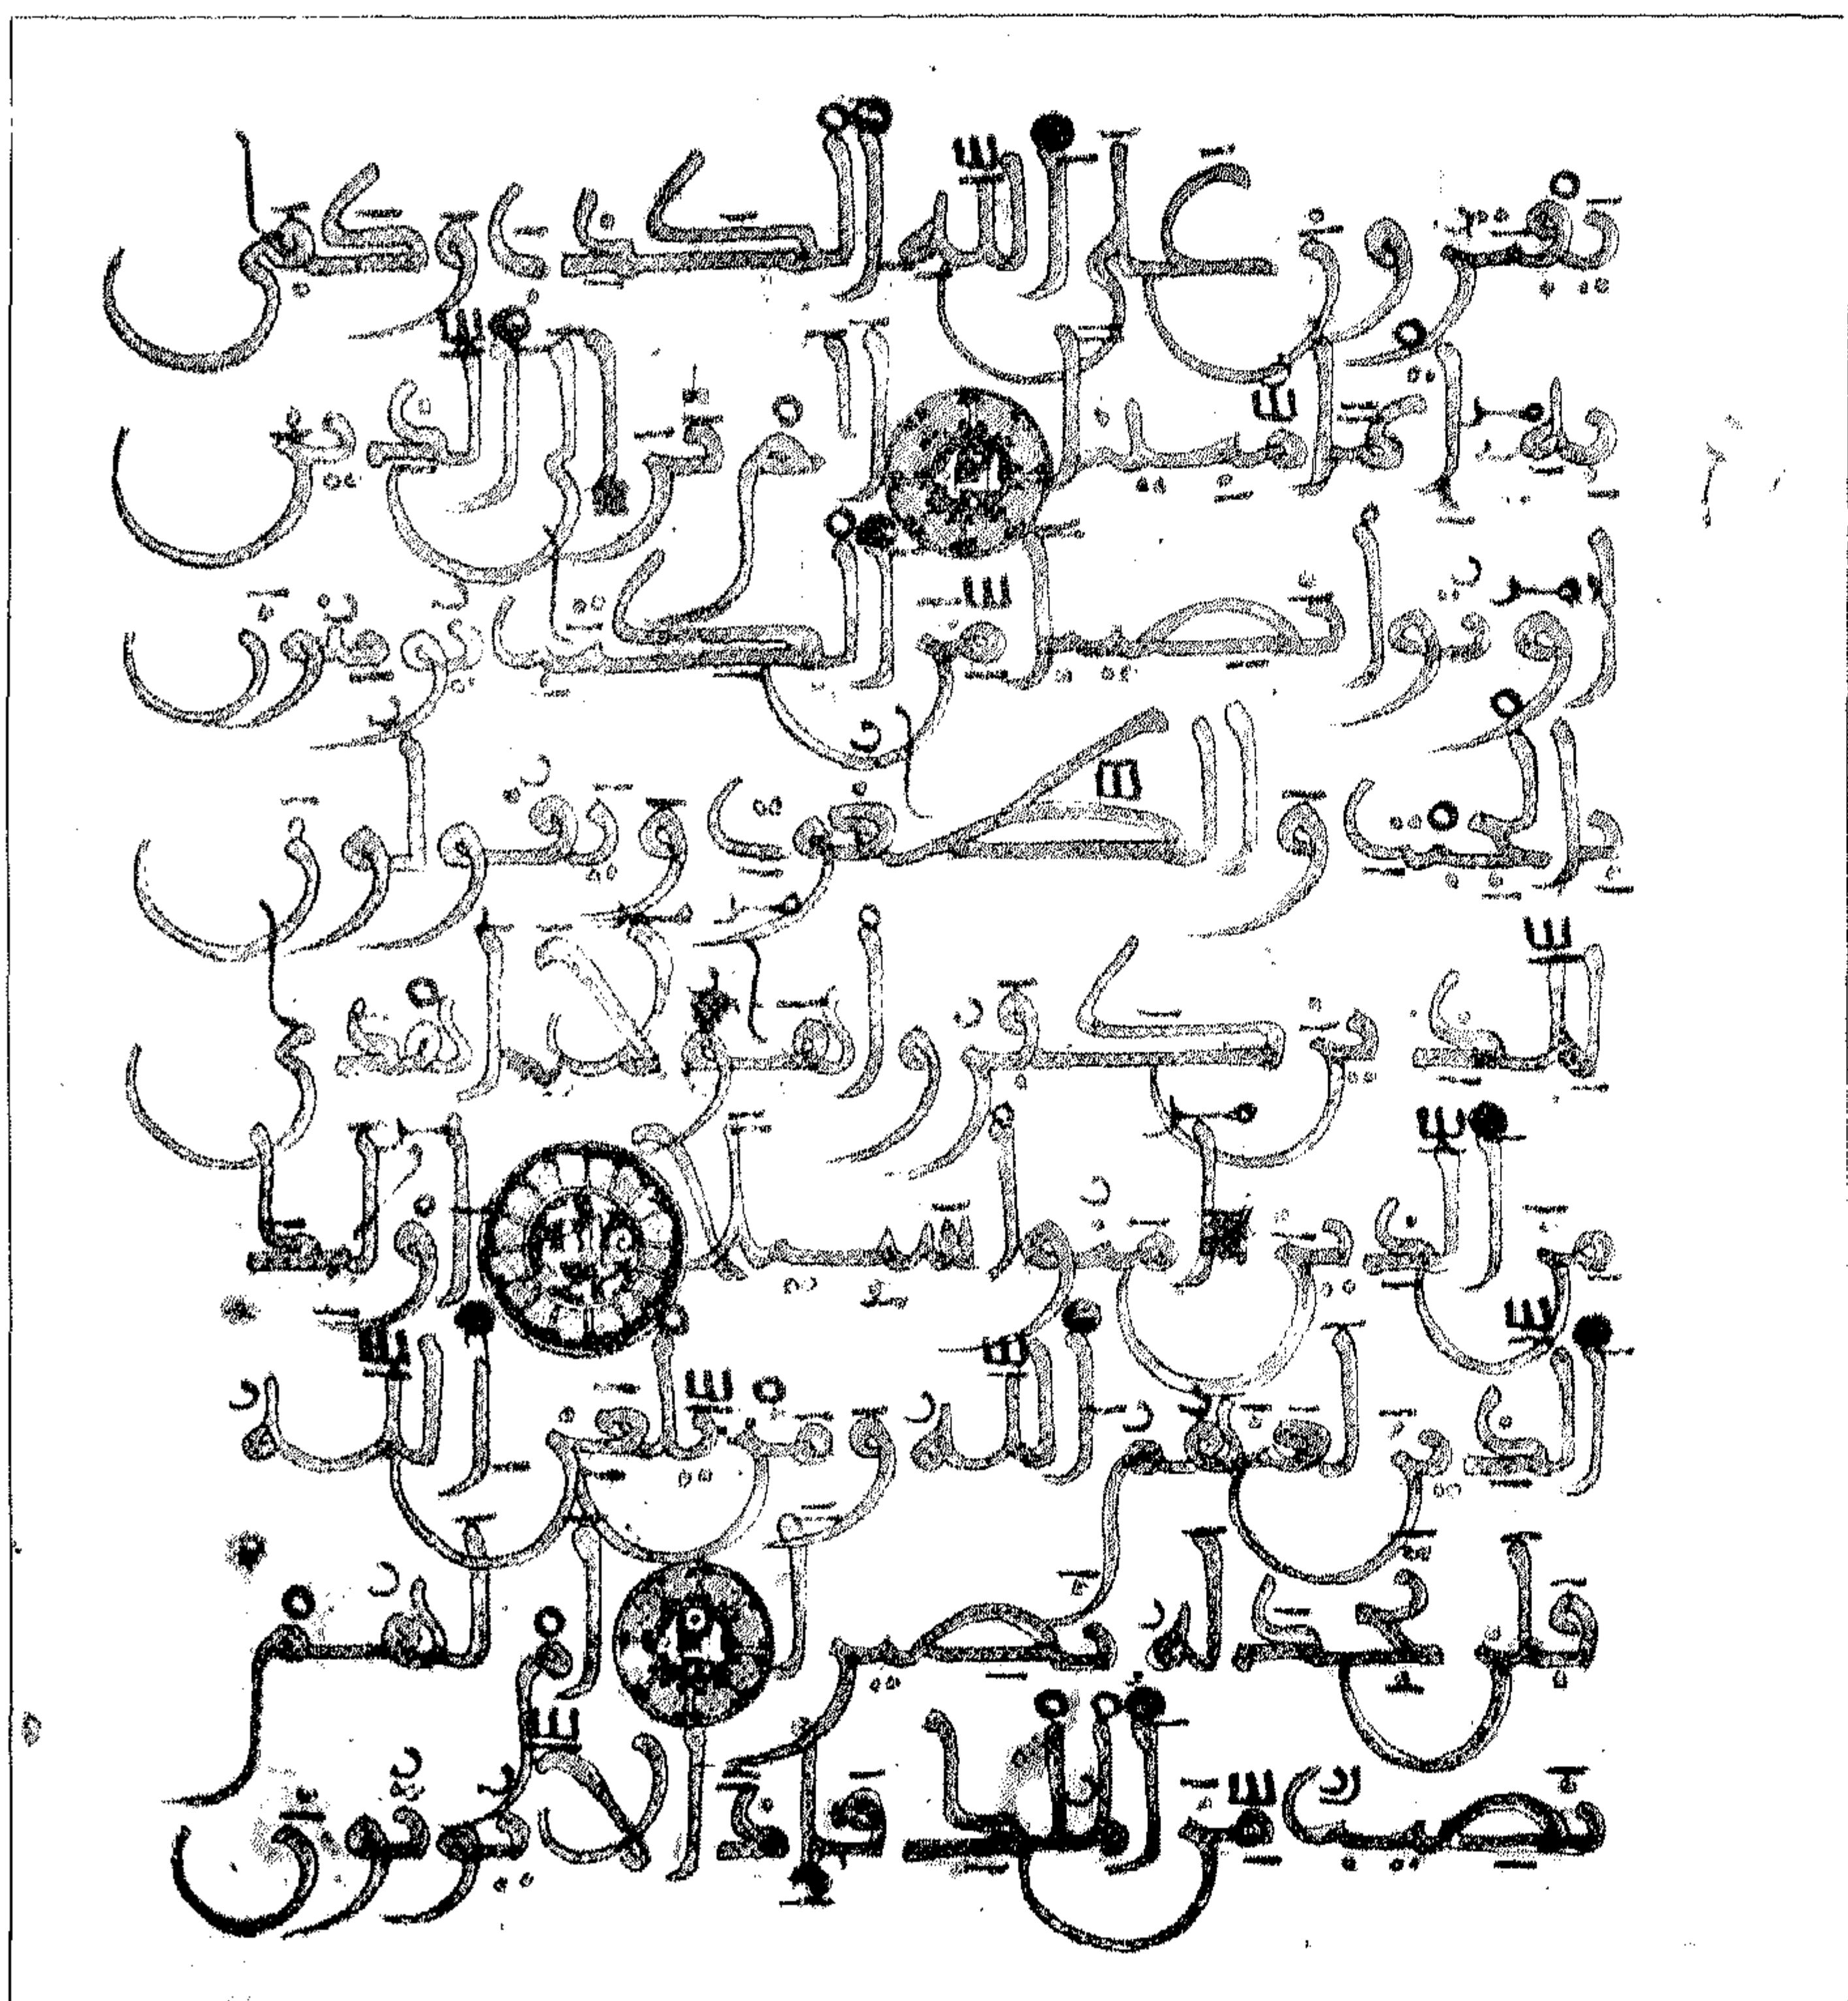 يَفْتَرُونَ عَلَى اَللَّهِ اِلْكَذِبَ وَكَفٜىٰ
بِهِۦٓ إِثْماً مُّبِيناً أَلَمْ تَرَ إِلَى اَلَّذِينَ
أُوتُواْ نَصِيباً مِّنَ اَلْكِتَٰبِ يُومِنُونَ
بِالْجِبْتِ وَالطَّٰغُوتِ وَيَقُولُونَ
لِلَّذِينَ كَفَرُواْ هَٰٓؤُلَآءِ اَهْد۪ىٰ
مِنَ اَلَّذِينَ ءَامَنُواْ سَبِيلاً أُوْلَٰٓئِكَ
اَلَّذِينَ لَعَنَهُمُ اُللَّهُ وَمَنْ يَّلْعَنِ اِللَّهُ
فَلَن تَجِدَ لَهُۥ نَصِيراً أَمْ لَهُمْ
نَصِيبٌ مِّنَ اَلْمُلْكِ فَإِذاً لَّا يُوتُونَ